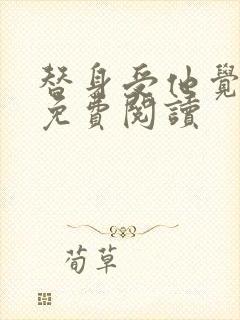 替身受他覺
免費閱讀
荀草